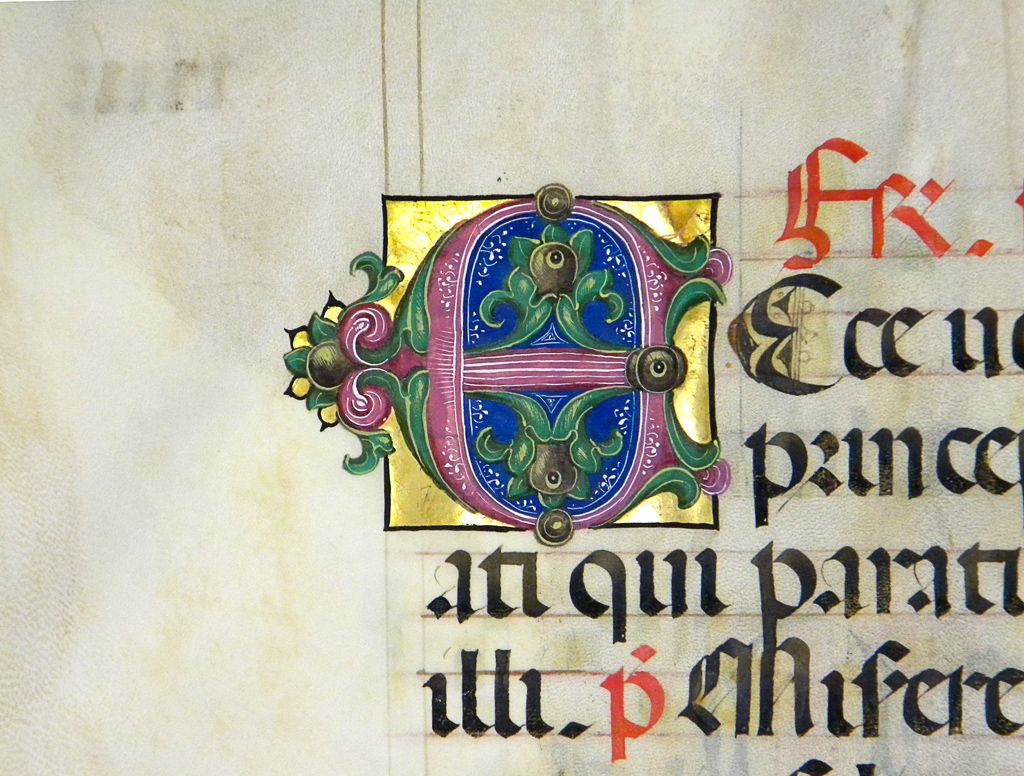 Fr.
E Ece ue
princep
ati qui parati
illi. p̄ Misere